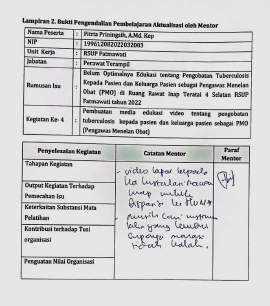 Lampiran 2. Bukti Pengendalian Pembelajaran Aktualisasi oleh Mentor
Nama Peserta : Pitra Priningsih, A.Md. Kep
NIP : 199612082022032003
Unit Kerja : RSUP Fatmawati
Jabatan : Perawat Terampil
Rumusan Isu : Belum Optimalnya Edukasi tentang Pengobatan Tuberculosis
Kepada Pasien dan Keluarga Pasien sebagai Pengawas Menelan
Obat (PMO) di Ruang Rawat Inap Teratai 4 Selatan RSUP
Fatmawati tahun 2022
Kegiatan Ke- 4 : Pembuatan media edukasi video tentang pengobatan
tuberculosis kepada pasien dan keluarga pasien sebagai PMO
(Pengawas Menelan Obat)
Penyelesaian Kegiatan Catatan Mentor Paraf
Mentor
Tahapan Kegiatan
- video lapor kepada
Ka Instalasi rawat
inap untuk
Output Kegiatan Terhadap
Pemecahan Isu
Keterkaitan Substansi Mata
Pelatihan
Kontribusi terhadap Tusi
organisasi
yang
supaya
Penguatan Nilai Organisasi